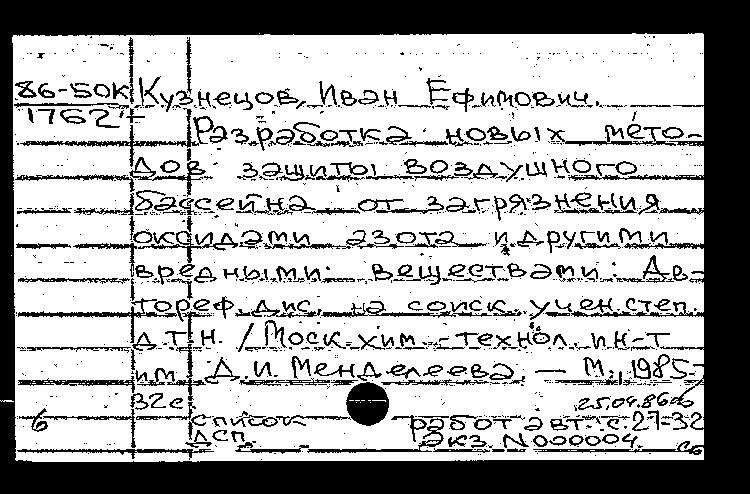 86-50К Кузнецов, Иван Ефимович.
1762
Разработка новых мето-
дов защиты воздушного
бассейна от загрязнения
оксидами азота и другими
вредными веществами: Ав-
тореф. дис. на соиск. учен. степ.
д.т.н. / Моск. хим.-технол. ин-т
им. Д.И. Менделеева. — М., 1985.-
32с. 25.04.86
6 Список работ авт.: с.27-32
ДСП. Экз. N000004.